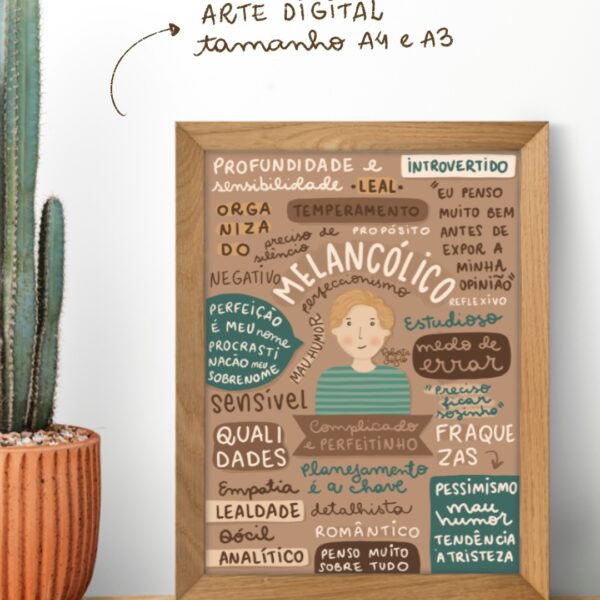 ARTE DIGITAL
tamanho A4 e A3
PROFUNDIDADE e
sensibilidade
LEAL
INTROVERTIDO
ORGA
NIZA
DO
TEMPERAMENTO
"EU PENSO
MUITO BEM
ANTES DE
EXPOR A
MINHA
OPINIÃO"
preciso de
silêncio
PROPÓSITO
NEGATIVO
MELANCÓLICO
REFLEXIVO
perfeccionismo
MAU HUMOR
PERFEIÇÃO
É MEU nome
PROCRASTI
NAÇÃO MEU
SOBRENOME
Estudioso
medo de
errar
"Preciso
ficar
sozinho"
sensível
Complicado
e PERFEITINHO
QUALI
DADES
FRAQUE
ZAS
Planejamento
é a chave
Empatia
LEALDADE
Dócil
ANALÍTICO
detalhista
ROMÂNTICO
PENSO MUITO
SOBRE TUDO
PESSIMISMO
mau
humor
TENDÊNCIA
À TRISTEZA